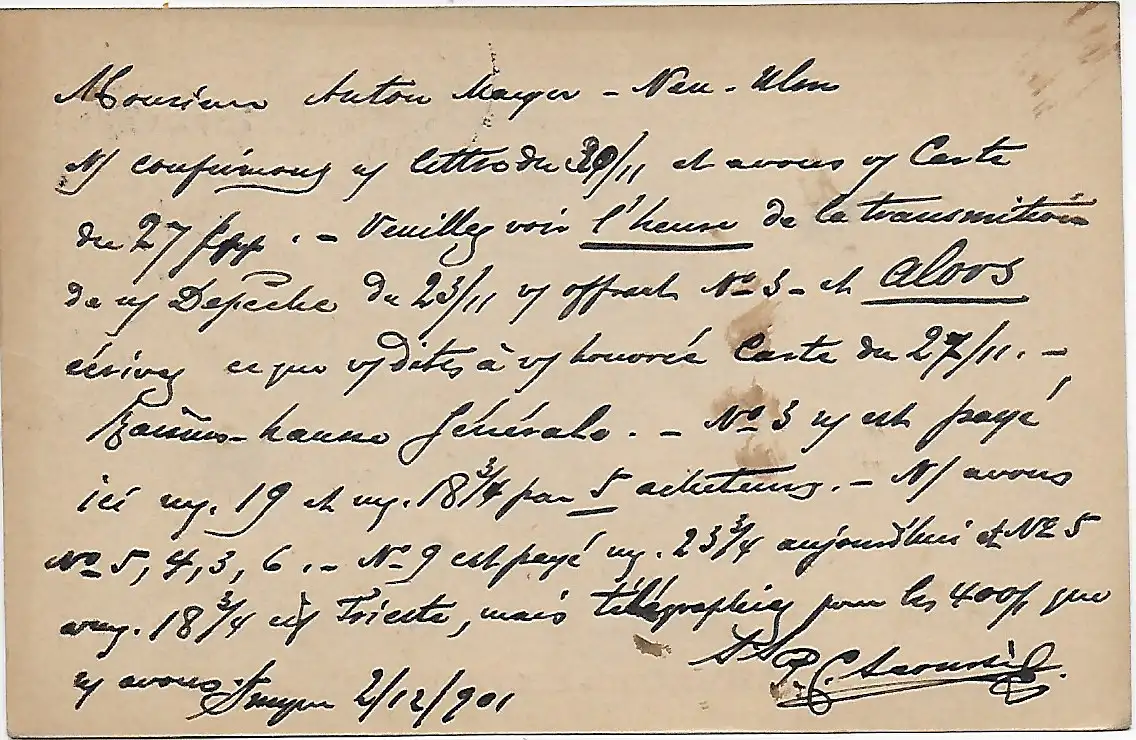 Monsieur Anton Mayer - Neu-Ulm
N/ confirmons n/ lettre du 30/11 et avons v/ Carte
du 27 . - Veuillez voir l'heure de la transmition
de n/ Depeche du 23/11 v/ offrant No 3 - et alors
écrivez ce que v/ dites à v/ honorée Carte du 27/11. -
hausse Générale. - No 3 est payé
ici 19 et 18 3/4 par 5 acheteurs. - N/ avons
No 5, 4, 3, 6. - No 9 est payé 23 3/4 aujourdhui et No 5
18 3/4 Trieste, mais télégraphiez pour les 400 que
avons. Smyrne 2/12/901